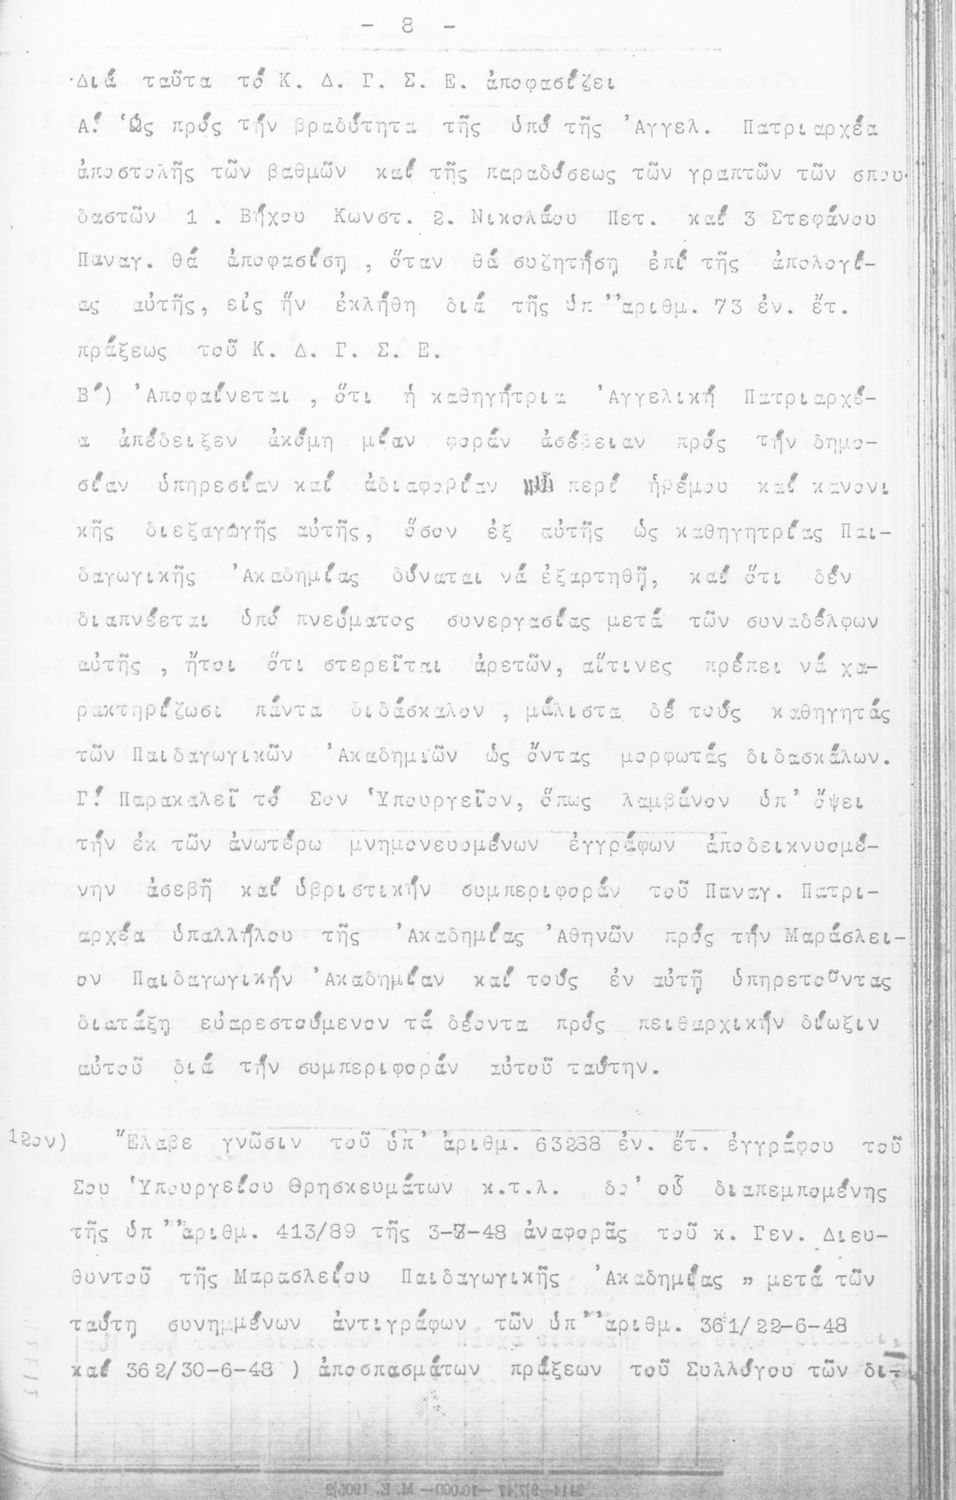 - 8 -
Διά ταῦτα τό Κ. Δ. Γ. Σ. Ε. ἀποφασίζει
Α! Ὡς πρός τήν βραδύτητα τῆς ὑπό τῆς 'Αγγελ. Πατριαρχέα
ἀποστολῆς τῶν βαθμῶν καί τῆς παραδόσεως τῶν γραπτῶν τῶν σπου-
δαστῶν 1 . Βήχου Κωνστ. 2. Νικολάου Πετ. καί 3 Στεφάνου
Παναγ. θά ἀποφασίση , ὅταν θά συζητήση ἐπί τῆς ἀπολογί-
ας αὐτῆς, εἰς ἥν ἐκλήθη διά τῆς ὑπ' 'ἀριθμ. 73 ἐν. ἔτ.
πράξεως τοῦ Κ. Δ. Γ. Σ. Ε.
Β!) 'Αποφαίνεται , ὅτι ἡ καθηγήτρια 'Αγγελική Πατριαρχέ-
α ἀπέδειξεν ἀκόμη μίαν φοράν ἀσέβειαν πρός τήν δημο-
σίαν ὑπηρεσίαν καί ἀδιαφορίαν περί ἠρέμου καί κανονι
κῆς διεξαγωγῆς αὐτῆς, ὅσον ἐξ αὐτῆς ὡς καθηγητρίας Παι-
δαγωγικῆς 'Ακαδημίας δύναται νά ἐξαρτηθῇ, καί ὅτι δέν
διαπνέεται ὑπό πνεύματος συνεργασίας μετά τῶν συναδέλφων
αὐτῆς , ἤτοι ὅτι στερεῖται ἀρετῶν, αἵτινες πρέπει νά χα-
ρακτηρίζωσι πάντα διδάσκαλον , μάλιστα δέ τούς καθηγητάς
τῶν Παιδαγωγικῶν 'Ακαδημιῶν ὡς ὄντας μορφωτάς διδασκάλων.
Γ! Παρακαλεῖ τό Σον Ὑπουργεῖον, ὅπως λαμβάνον ὑπ' ὄψει
τήν ἐκ τῶν ἀνωτέρω μνημονευομένων ἐγγράφων ἀποδεικνυομέ-
νην ἀσεβῆ καί ὑβριστικήν συμπεριφοράν τοῦ Παναγ. Πατρι-
αρχέα ὑπαλλήλου τῆς 'Ακαδημίας 'Αθηνῶν πρός τήν Μαράσλει-
ον Παιδαγωγικήν 'Ακαδημίαν καί τούς ἐν αὐτῇ ὑπηρετοῦντας
διατάξη εὐαρεστούμενον τά δέοντα πρός πειθαρχικήν δίωξιν
αὐτοῦ διά τήν συμπεριφοράν αὐτοῦ ταύτην.
12ον) "Ελαβε γνῶσιν τοῦ ὑπ' ἀριθμ. 63288 ἐν. ἔτ. ἐγγράφου τοῦ
Σου Ὑπουργείου Θρησκευμάτων κ.τ.λ. δι' οὗ διαπεμπομένης
τῆς ὑπ' 'ἀριθμ. 413/89 τῆς 3-7-48 ἀναφορᾶς τοῦ κ. Γεν. Διευ-
θυντοῦ τῆς Μαρασλείου Παιδαγωγικῆς 'Ακαδημίας " μετά τῶν
ταύτη συνημμένων ἀντιγράφων τῶν ὑπ' 'ἀριθμ. 361/22-6-48
καί 362/30-6-48 ) ἀποσπασμάτων πράξεων τοῦ Συλλόγου τῶν δι-